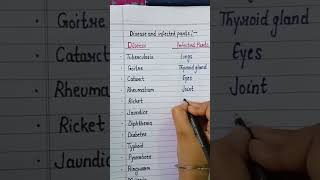 Disease and infected parts :-
Disease Infected Parts
Tuberculosis Lungs
Goitre Thyroid gland
Cataract Eyes
Rheumatism Joint
Ricket
Jaundice
Diphtheria
Diabetes
Typhoid
Ringworm
Goitre Thyroid gland
Cataract Eyes
Rheumatism Joint
Ricket
Jaundice